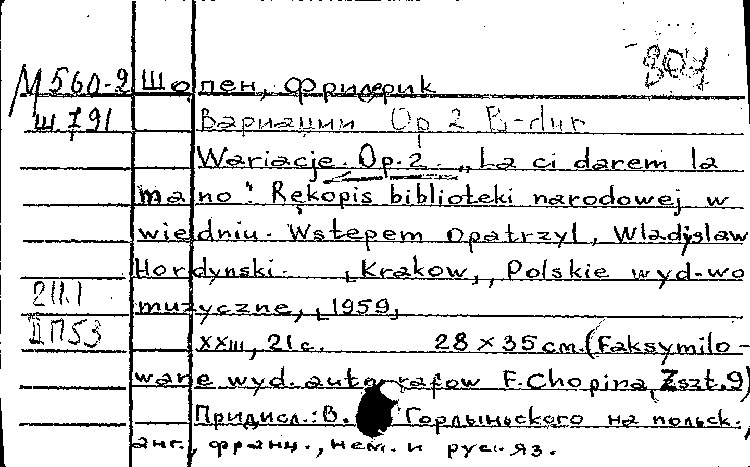 807
М 560-2 Шопен, Фридерик
Ш 791 Вариации Op 2 B-dur
Wariacje. Op. 2. „La ci darem la
mano". Rękopis biblioteki narodowej w
wiedniu. Wstepem opatrzyl, Wladislaw
Hordynski. [Krakow], Polskie wyd-wo
muzyczne, [1959]
2111.1
IIП53
XXIII, 21 с. 28 × 35 cm. (Faksymilo-
wane wyd. autografow F. Chopina, Zszt. 9)
Придисл.: В. Горлыньского на польск.,
анг., франц., нем. и русс. яз.